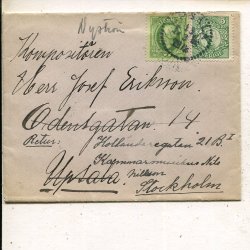 Nyström
Kompositören
Herr Josef Eriksson.
Odensgatan 14.
Retur: Hollandaregatan 21 B I
Kammarmusikus Nils
Upsala. Nilsson
Stockholm